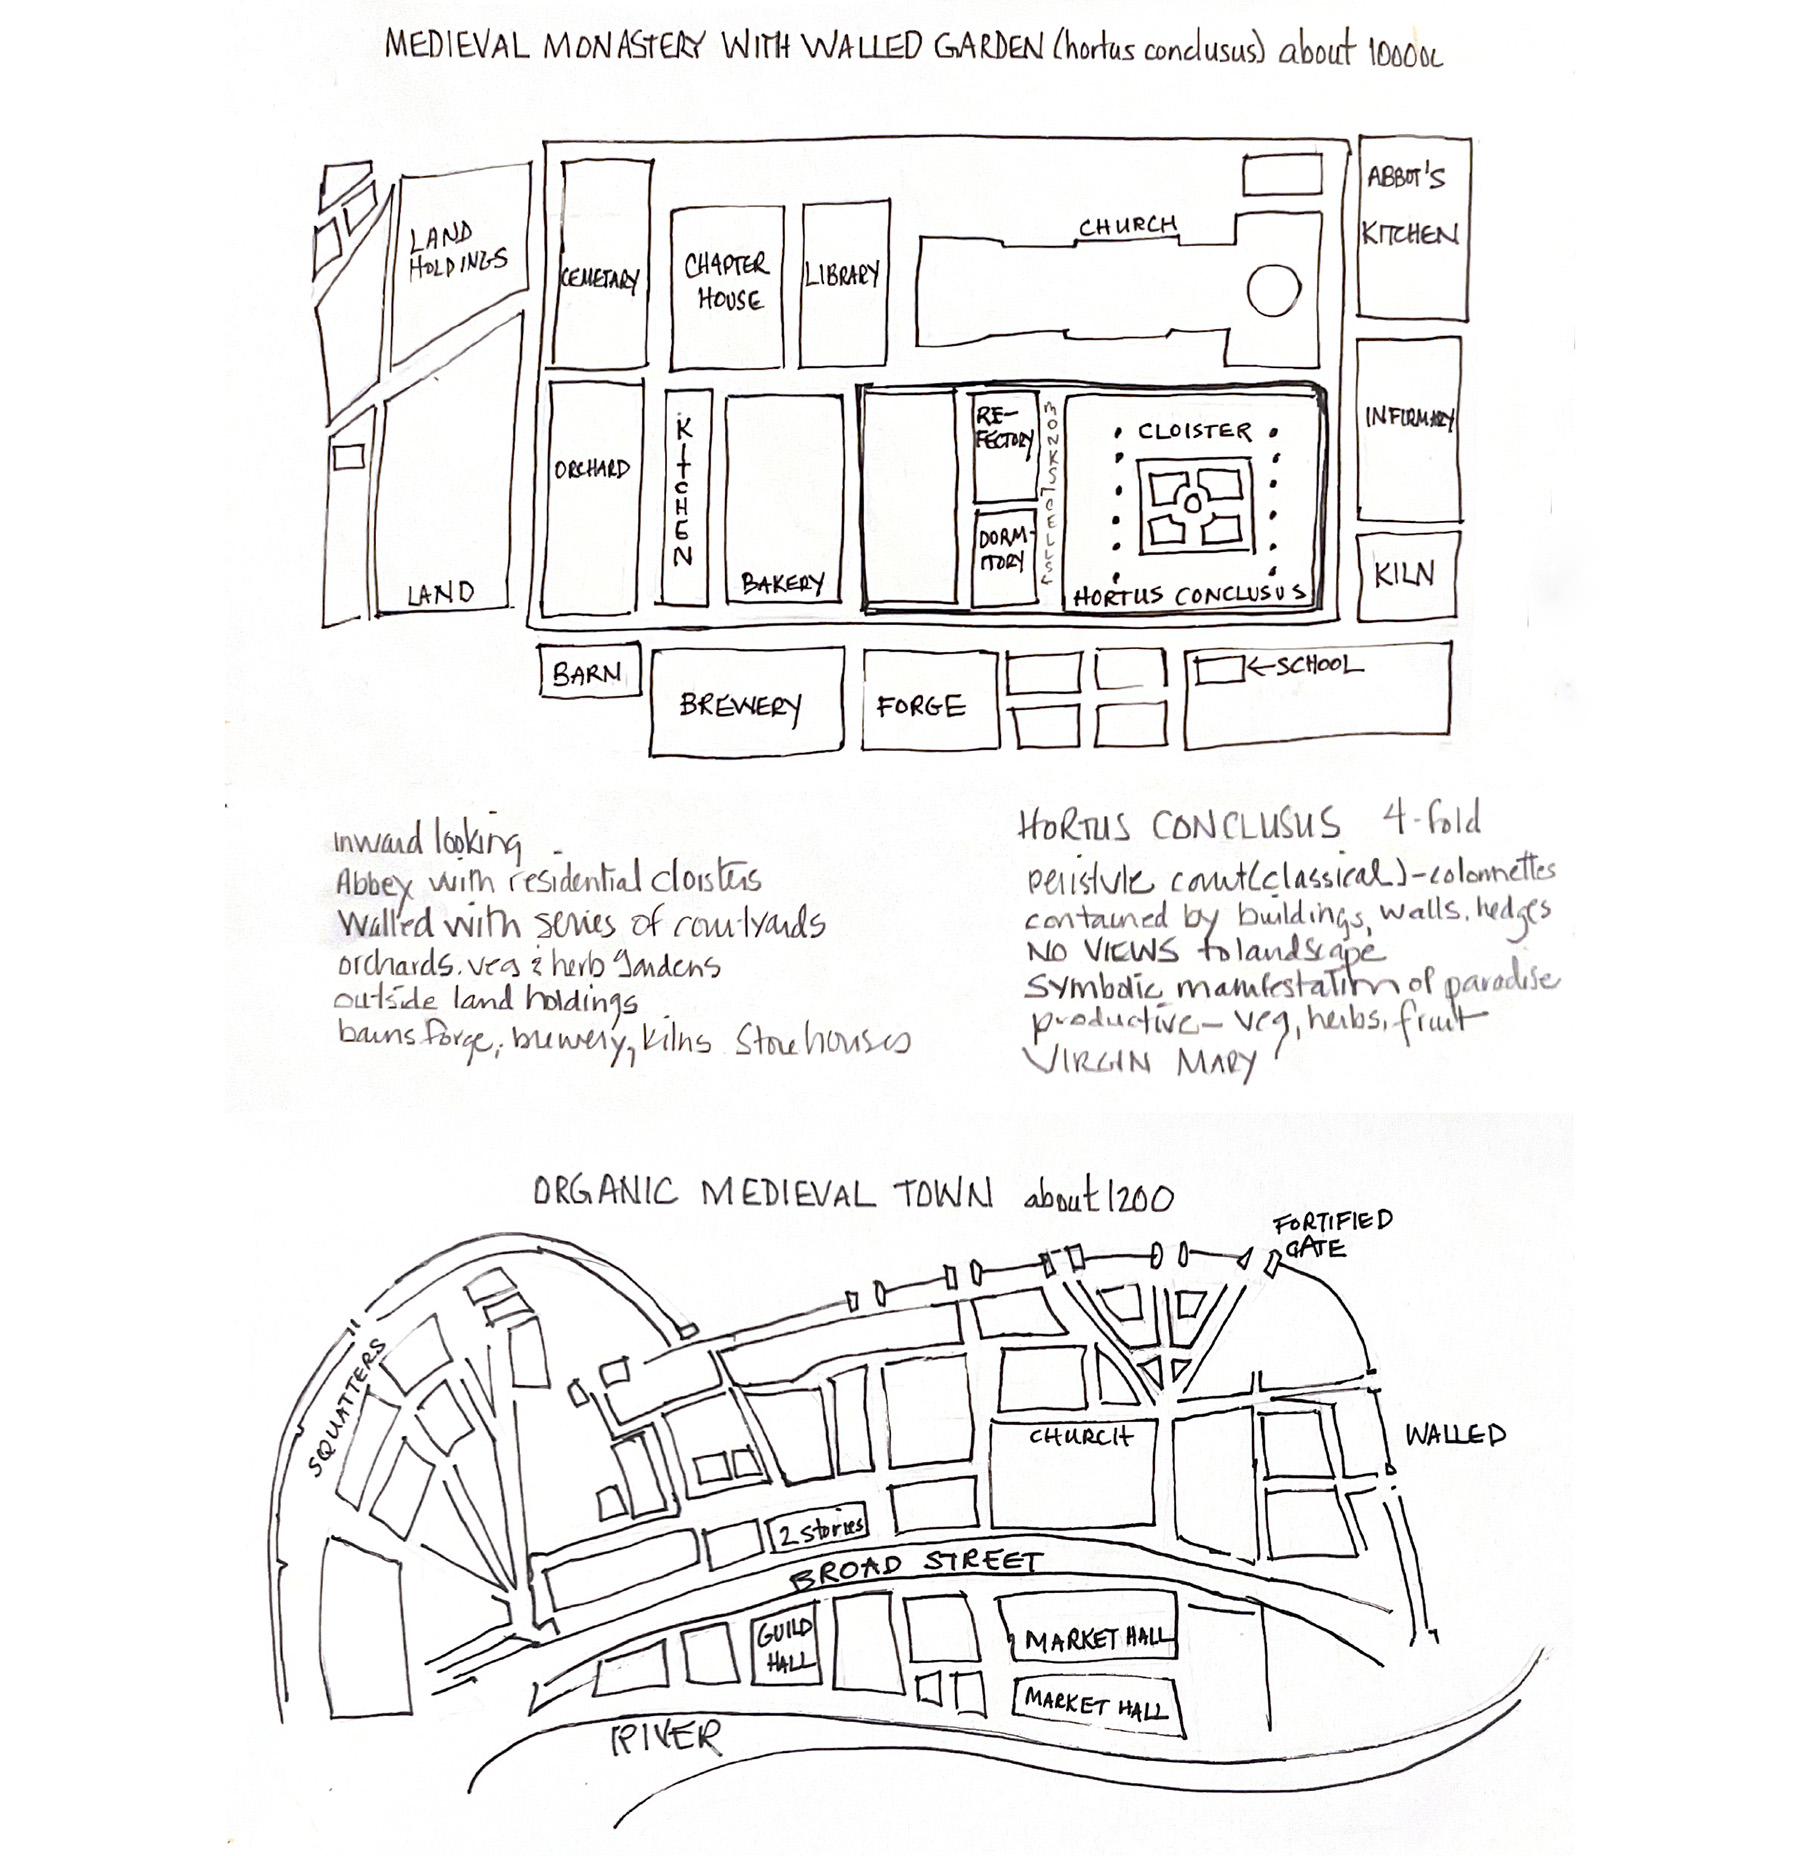 MEDIEVAL MONASTERY WITH WALLED GARDEN (hortus conclusus) about 1000
LAND
HOLDINGS
CEMETARY
CHAPTER
HOUSE
LIBRARY
CHURCH
ABBOT'S
KITCHEN
ORCHARD
KITCHEN
BAKERY
RE-
FECTORY
DORM-
ITORY
MONKS' CELLS
CLOISTER
HORTUS CONCLUSUS
INFIRMARY
KILN
LAND
BARN
BREWERY
FORGE
←SCHOOL
inward looking
Abbey with residential cloisters
Walled with series of courtyards
orchards. veg & herb gardens
outside land holdings
barns forge, brewery, kilns storehouses
HORTUS CONCLUSUS 4-fold
peristyle court (classical) - colonnettes
contained by buildings, walls, hedges
NO VIEWS to landscape
Symbolic manifestation of paradise
productive - veg, herbs, fruit
VIRGIN MARY
ORGANIC MEDIEVAL TOWN about 1200
FORTIFIED
GATE
SQUATTERS
WALLED
CHURCH
2 stories
BROAD STREET
GUILD
HALL
MARKET HALL
MARKET HALL
RIVER